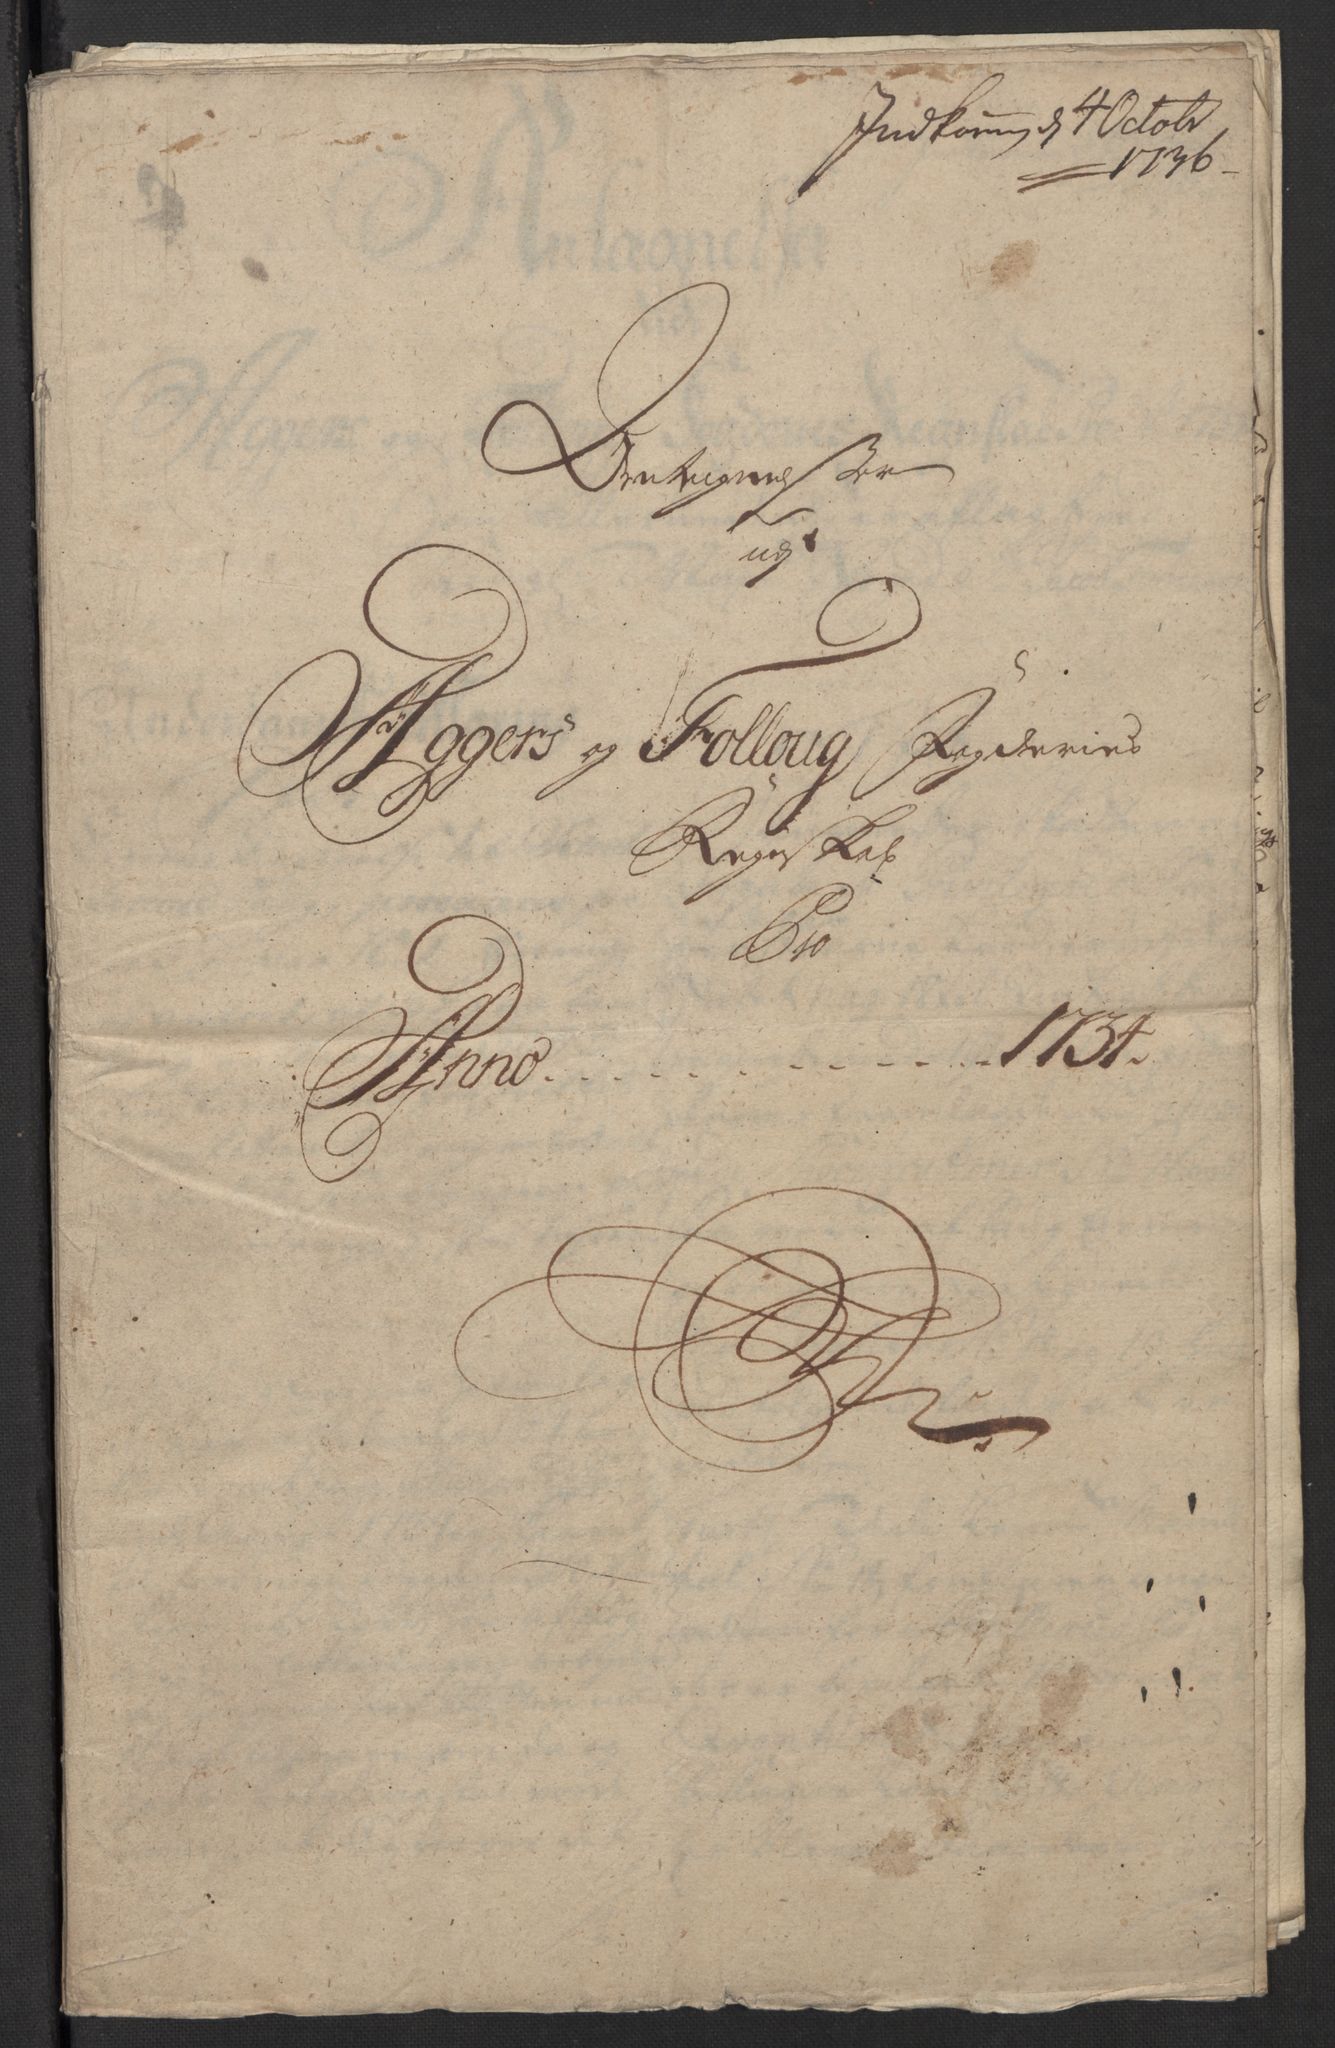 Indkom d 4 Octobr
1736
Antegnelser
udj
Aggers og Folloug Fogderies
Regnskab
Pro
Anno 1734.